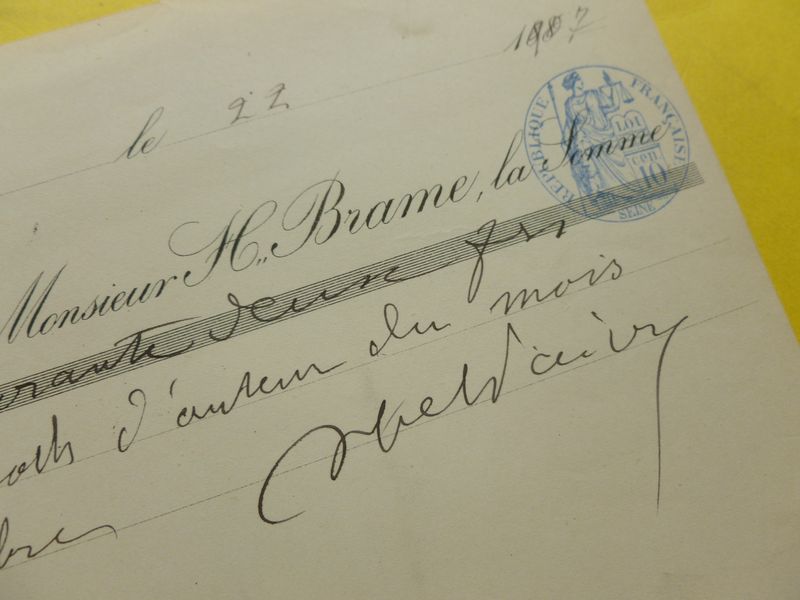 le 22 1887
RÉPUBLIQUE FRANÇAISE
LOI
10
SEINE
Monsieur H. Brame, la Somme
rante deux frs
d'auteur du mois
bre